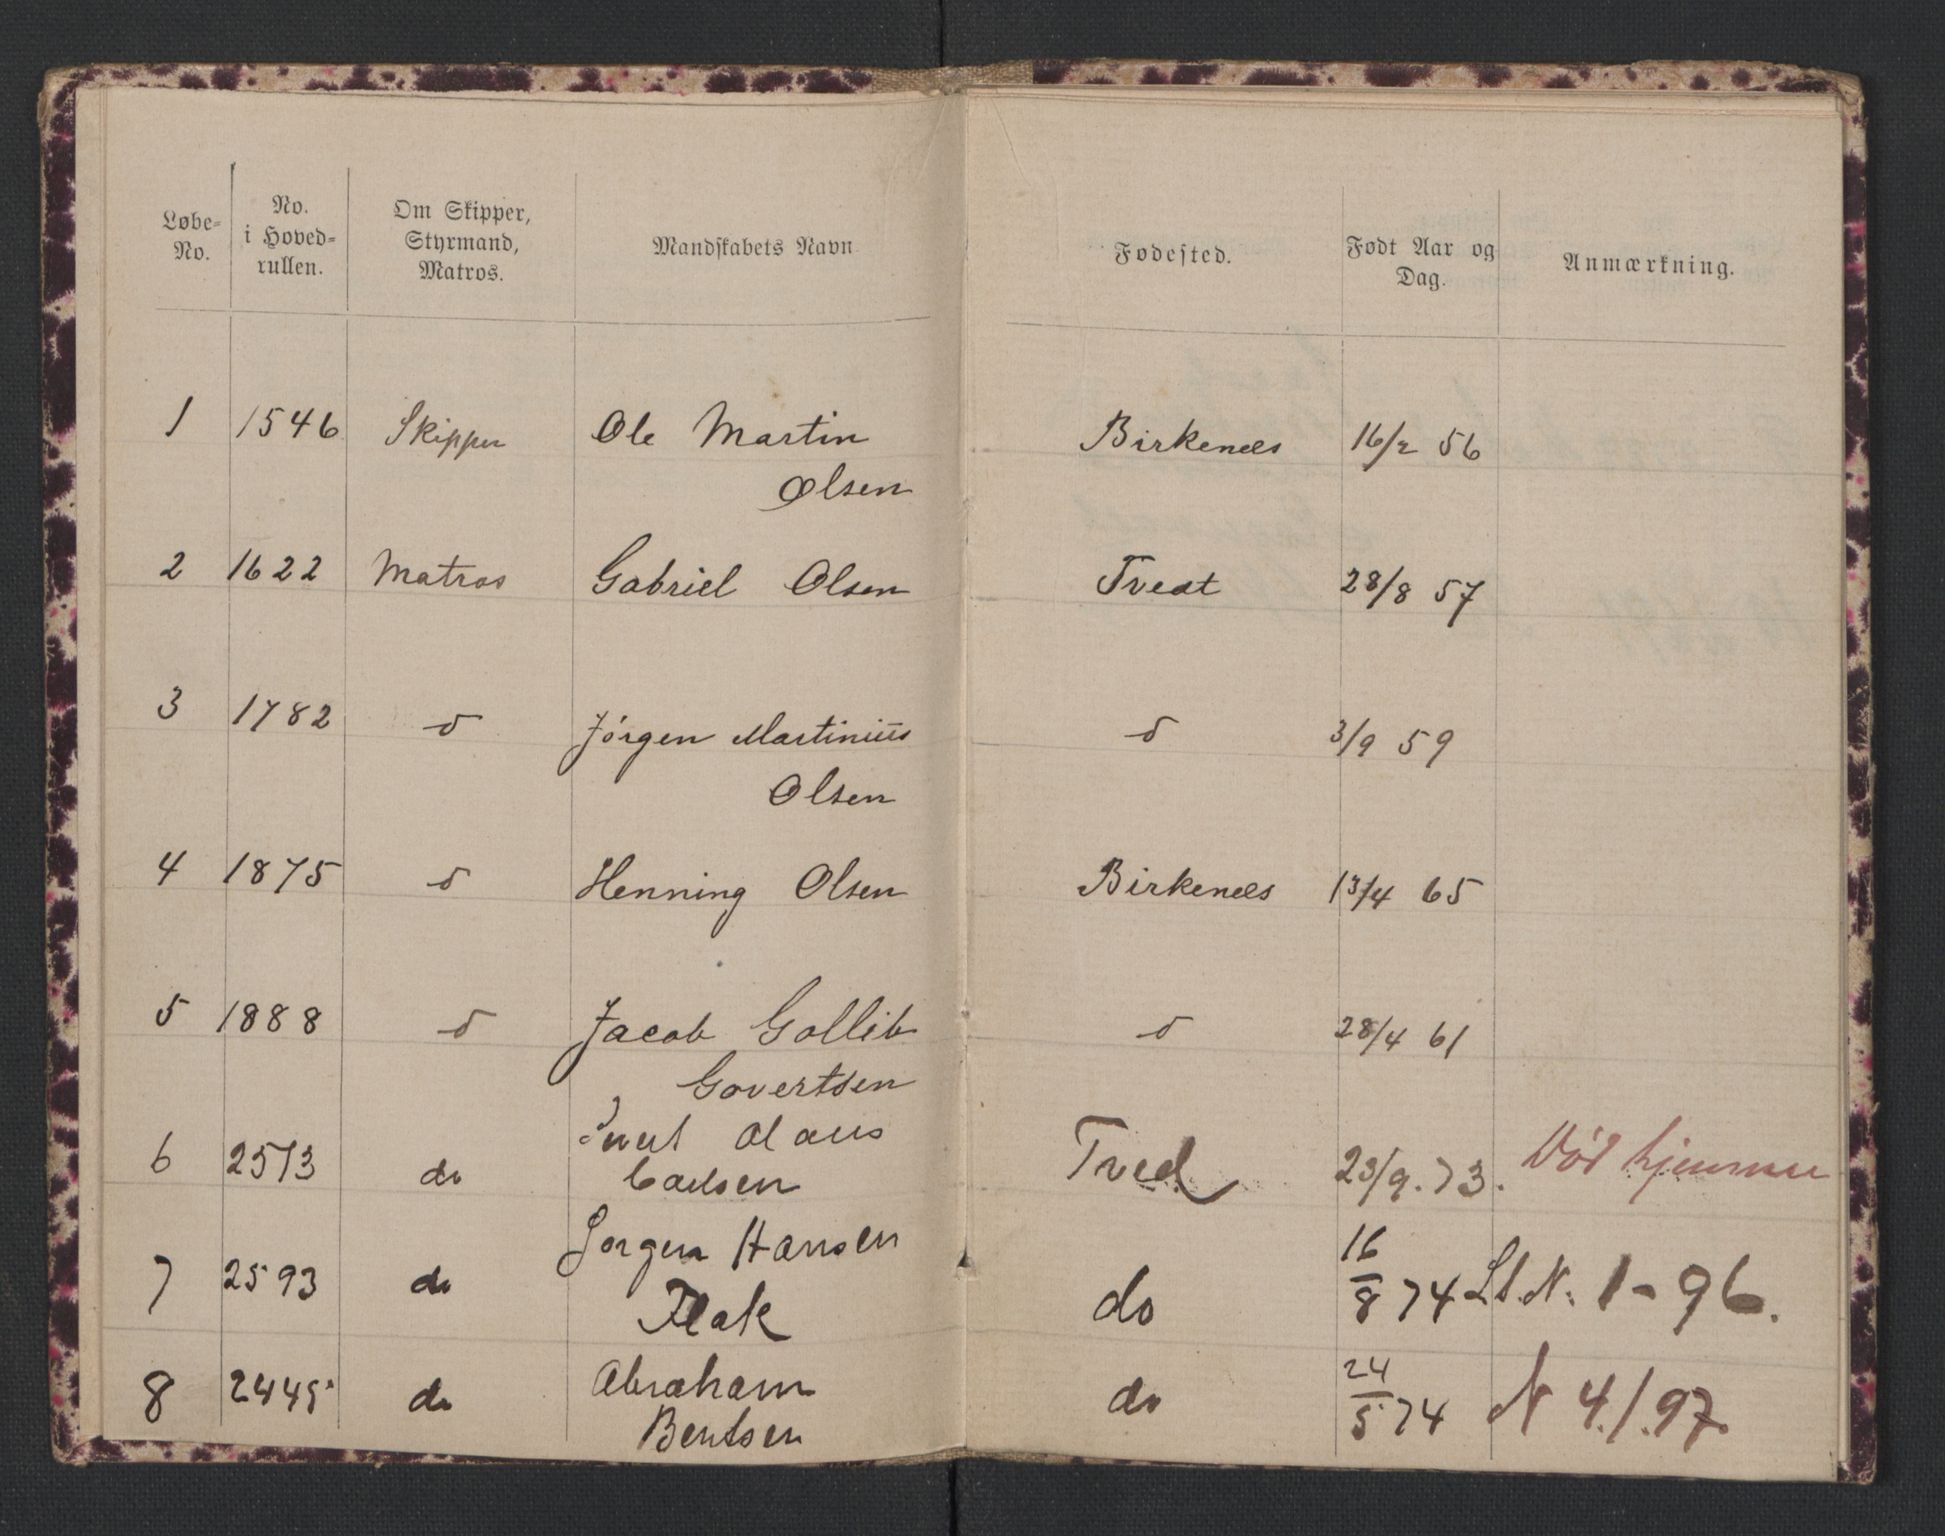 Løbe-
No.
No.
i Hoved-
rullen.
Om Skipper,
Styrmand,
Matros.
Mandskabets Navn
Fødested.
Født Aar og
Dag.
Anmærkning.
1 1546 Skipper Ole Martin Birkenæs 16/2 56
Olsen
2 1622 Matros Gabriel Olsen Tvedt 28/8 57
3 1782 do Jórgen Martinius do 3/9 59
Olsen
4 1875 do Henning Olsen Birkenæs 13/4 65
5 1888 do Jacob Gollib do 28/4 61
Govertsen
6 2573 do Olaus Tved 23/9. 73. Död hjemme
Carlsen
7 2593 do Jorgen Hansen do 16/8 74 Lb. N. 1-96.
Flak
8 2445 do Abraham do 24/5 74 N 4./.97.
Bentsen